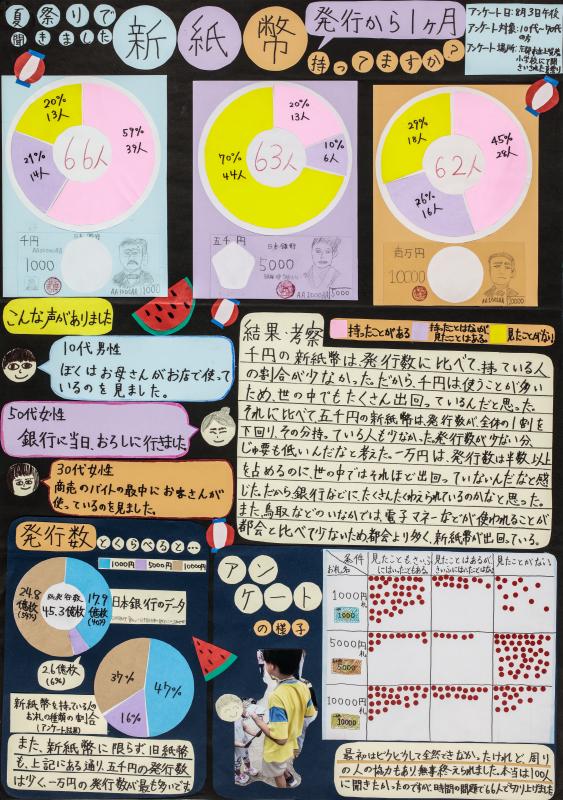 夏祭りで
聞きました
新紙幣
発行から1ヶ月
持ってますか?
アンケート日:8月3日午後
アンケート対象:10代〜70代の方
アンケート場所:
小学校にて開
20%
13人
59%
39人
21%
14人
66人
千円
日本銀行
AA1000AA
1000
AA1000AA
1000
20%
13人
10%
6人
70%
44人
63人
五千円
日本銀行
5000
AA1000AA
5000
29%
18人
45%
28人
26%
16人
62人
壱万円
10000
AA1000AA
10000
こんな声がありました
10代男性
ぼくはお母さんがお店で使って
いるのを見ました。
50代女性
銀行に当日、おろしに行きました
30代女性
商売のバイトの最中にお客さんが
使っているのを見ました。
結果・考察
持ったことがある
持ったことはないが、
見たことはある。
見たことがない
千円の新紙幣は、発行数に比べて、持っている人
の割合が少なかった。だから、千円は使うことが多い
ため、世の中でもたくさん出回っているんだと思った。
それに比べて五千円の新紙幣は、発行数が、全体の1割を
下回り、その分持っている人も少なかった。発行数が少ない分、
じゅ要も低いんだなと考えた。一万円は、発行数は半数以上
を占めるのに、世の中ではそれほど出回っていないんだなと感
じた。だから、銀行などにたくさんたくわえられているのかなと思った。
また、鳥取などのいなかでは、電子マネーなどが使われることが
都会と比べて少ないため、都会より多く、新紙幣が出回っている。
発行数とくらべると…
1000円
5000円
10000円
24.8
億枚
総発行数
45.3億枚
17.9
億枚
(40%)
2.6億枚
(6%)
日本銀行のデータ
37%
47%
16%
新紙幣を持っている人の
お札の種類の割合
(アンケート結果)
また、新紙幣に限らず旧紙幣
も、上記にある通り、五千円の発行数
は少く、一万円の発行数が最も多いです
アンケート
の様子
条件
お札名
見たこともさいふ
にはいったこともある。
見たことはあるが、
さいふにはいったことはない
見たことがない
1000円
札
1000
5000円
札
5000
10000円
札
10000
最初はビクビクして全然できなかったけれど、周り
の人の協力もあり、無事終えられました。本当は100人
に聞きたかったのですが、時間の問題で66人で切り上げました